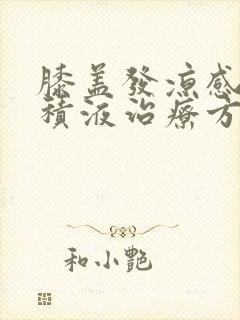 膝盖發凉感
積液治療方
和小艷